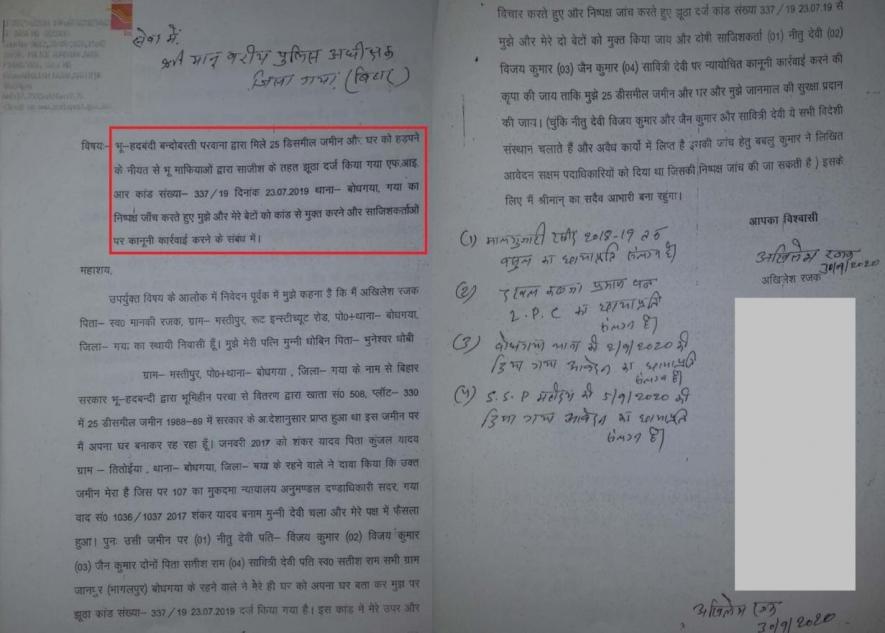 सेवा में,
श्री मान वरीय पुलिस अधीक्षक
जिला गया, (बिहार)
विषयः- भू–हदबंदी बन्दोबस्ती परवाना द्वारा मिले 25 डिसमील जमीन और घर को हड़पने
के नीयत से भू माफियाओं द्वारा साजीश के तहत झूठा दर्ज किया गया एफ.आई.
आर कांड संख्या– 337/19 दिनांक 23.07.2019 थाना– बोधगया, गया का
निष्पक्ष जाँच करते हुए मुझे और मेरे बेटों को कांड से मुक्त करने और साजिशकर्ताओं
पर कानूनी कार्रवाई करने के संबंध में।
महाशय,
उपर्युक्त विषय के आलोक में निवेदन पूर्वक में मुझे कहना है कि मैं अखिलेश रजक
पिता– स्व० मानकी रजक, ग्राम– मस्तीपुर, रूट इन्स्टीच्यूट रोड, पो०+थाना– बोधगया,
जिला– गया का स्थायी निवासी हूँ। मुझे मेरी पत्नि मुन्नी धोबिन पिता– भुनेश्वर धोबी
ग्राम– मस्तीपुर, पो०+थाना– बोधगया , जिला– गया के नाम से बिहार
सरकार भू–हदबन्दी द्वारा भूमिहीन परचा से वितरण द्वारा खाता सं० 508, प्लॉट– 330
में 25 डीसमील जमीन 1988–89 में सरकार के आदेशानुसार प्राप्त हुआ था इस जमीन पर
मैं अपना घर बनाकर रह रहा हूँ। जनवरी 2017 को शंकर यादव पिता कुंजल यादव
ग्राम – तितोईया , थाना– बोधगया, जिला– गया के रहने वाले ने दावा किया कि उक्त
जमीन मेरा है जिस पर 107 का मुकदमा न्यायालय अनुमण्डल दण्डाधिकारी सदर, गया
वाद सं० 1036/1037 2017 शंकर यादव बनाम मुन्नी देवी चला और मेरे पक्ष में फैसला
हुआ। पुनः उसी जमीन पर (01) नीतु देवी पति– विजय कुमार (02) विजय कुमार
(03) जैन कुमार दोनों पिता सतीश राम (04) सावित्री देवी पति स्व० सतीश राम सभी ग्राम
जानपुर (भागलपुर) बोधगया के रहने वाले ने मेरे ही घर को अपना घर बता कर मुझ पर
झूठा कांड संख्या– 337/19 23.07.2019 दर्ज किया गया है। इस कांड में मेरे उपर और
विचार करते हुए और निष्पक्ष जांच करते हुए झूठा दर्ज कांड संख्या 337/19 23.07.19 से
मुझे और मेरे दो बेटों को मुक्त किया जाय और दोषी साजिशकर्ता (01) नीतु देवी (02)
विजय कुमार (03) जैन कुमार (04) सावित्री देवी पर न्यायोचित कानूनी कार्रवाई करने की
कृपा की जाय ताकि मुझे 25 डीसमील जमीन और घर और मुझे जानमाल की सुरक्षा प्रदान
की जाय। (चुंकि नीतु देवी विजय कुमार और जैन कुमार और सावित्री देवी ये सभी विदेशी
संस्थान चलाते हैं और अवैध कार्यो में लिप्त है इसकी जांच हेतु बबलु कुमार ने लिखित
आवेदन सक्षम पदाधिकारियों को दिया था जिसकी निष्पक्ष जांच की जा सकती है ) इसके
लिए मैं श्रीमान् का सदैव आभारी बना रहूंगा।
आपका विश्वासी
अखिलेश रजक
30/9/2020
अखिलेश रजक
(1) मालगुजारी रसीद 2018-19 तक
का छायाप्रति संलग्न है।
(2) दखल कब्जा प्रमाण पत्र
L.P.C का छायाप्रति
संलग्न है।
(3) बोधगया थाना में 2/9/2020 को
दिया गया आवेदन का छायाप्रति
संलग्न है।
(4) S.S.P महोदय को 5/9/2020 को
दिया गया आवेदन का छायाप्रति
संलग्न है।
अखिलेश रजक
30/9/2020